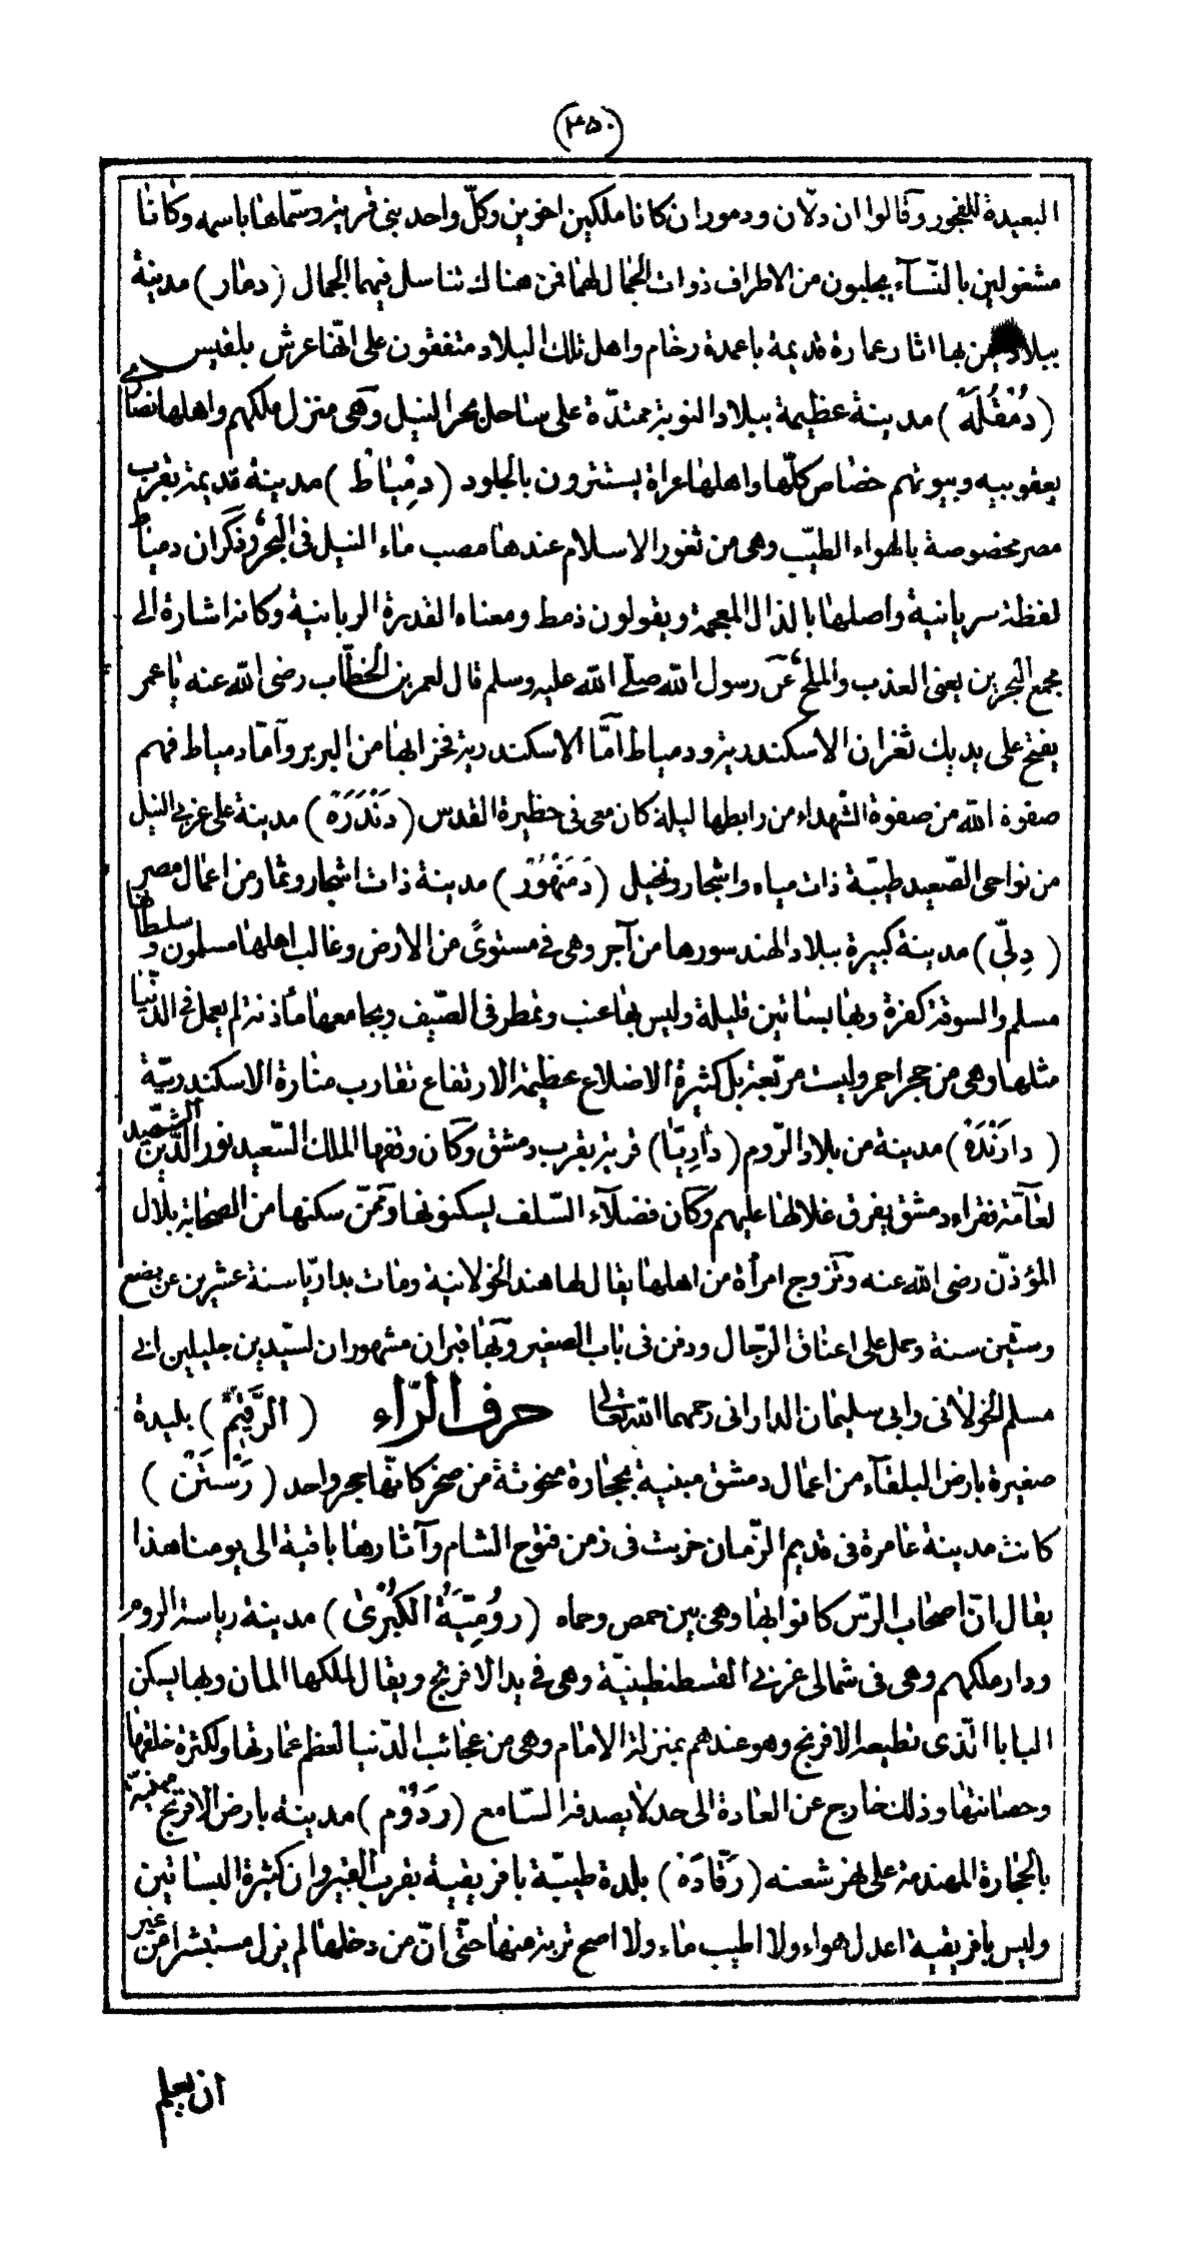 (٤٥٠)
البعيدة للفجور وقالوا ان دلّان ودموران كانا ملكين اخوين وكلّ واحد بنى قرية وسمّاها باسمه وكانا
مشغولين بالنّسآء يجلبون من الاطراف ذوات الجمال لهما فمن هناك تناسل فيهما الجمال (دمار) مدينة
ببلاد يمن بها اثار عمارة قديمة باعمدة رخام واهل تلك البلاد متفقون على انّها عرش بلقيس
(دُمْقُلَة) مدينة عظيمة ببلاد النوبة ممتدّة على ساحل بحر النيل وهى منزل ملكهم واهلها نصارى
يعقوبيه وبيوتهم خصاص كلّها واهلها عراة يستترون بالجلود (دمِيْاط) مدينة قديمة بقرب
مصر مخصوصة بالهواء الطيّب وهى من ثغور الاسلام عندها مصب ماء النيل فى البحر وذكر ان دمياط
لفظة سريانية واصلها بالذال المعجمة ويقولون ذمط ومعناه القدرة الربانية وكانه اشارة الى
مجمع البحرين يعنى العذب والملح عن رسول الله صلّى الله عليه وسلم قال لعمر بن الخطّاب رضى الله عنه يا عمر
يفتح على يديك ثغران الاسكندرية ودمياط امّا الاسكندرية فخرابها من البربر وامّا دمياط فهم
صفوة الله من صفوة الشّهداء من رابطها ليلة كان معى فى حظيرة القدس (دَنْدَرَة) مدينة على غربى النيل
من نواحى الصّعيد طيّبة ذات مياه واشجار ونخيل (دَمَنْهُوْر) مدينة ذات اشجار وثمار من اعمال مصر
(دِلّي) مدينة كبيرة ببلاد الهند سورها من آجر وهى فى مستوىً من الارض وغالب اهلها مسلمون وسلطانها
مسلم والسوقة كفرة وبها بساتين قليلة وليس بها عنب وتمطر فى الصّيف وبجامعها مأذنة لم يعمل فى الدّنيا
مثلها وهى من حجر احمر وليست مربّعة بل كثيرة الاضلاع عظيمة الارتفاع تقارب منارة الاسكندريّة
(دارَنْدَة) مدينة من بلاد الرّوم (دٰارِيّا) قرية بقرب دمشق وكان وقفها الملك السّعيد نور الدّين الشّهيد
لعامّة فقراء دمشق يفرق غلاتها عليهم وكان فضلآء السّلف يسكنونها وممّن سكنها من الصحابة بلال
المؤذّن رضى الله عنه وتزوج امرأة من اهلها يقال لها هند الخولانية ومات بداريّا سنة عشرين عن بضع
وستّين سنة وحمل على اعناق الرّجال ودفن فى باب الصغير وبها قبران مشهوران لسيّدين جليلين ابى
مسلم الخولانى وابى سليمان الدارانى رحمهما الله تعالى حرف الرّاء (الرَّقِيْمُ) بليدة
صغيرة بارض البلقآء من اعمال دمشق مبنية بحجارة منحوتة من صخر كانّها حجر واحد (رَسْتَنْ)
كانت مدينة عامرة فى قديم الزّمان خربت فى زمن فتوح الشام وآثارها باقية الى يومنا هذا
يقال انّ اصحاب الرّس كانوا بها وهى بين حمص وحماه (روُمِيَّةُ الكُبْرىٰ) مدينة رياسة الروم
ودار ملكهم وهى فى شمالى غربى القسطنطينيّة وهى فى يد الافرنج ويقال لملكها المان وبها يسكن
البابا الّذى تطيعه الافرنج وهو عندهم بمنزلة الامام وهى من عجائب الدّنيا لعظم عمارتها ولكثرة خلقها
وحصانتها وذلك خارج عن العادة الى حد لا يصدقه السّامع (ردَوُم) مدينة بارض الافرنج مبنيّة
بالحجارة المهندمة على نهر شعنه (رَقّادَة) بلدة طيبّة بافريقية بقرب القيروان كثيرة البساتين
وليس بافريقية اعدل هواء ولا اطيب ماء ولا اصح تربة منها حتّى انّ من دخلها لم يزل مستبشرا من غير
ان يعلم